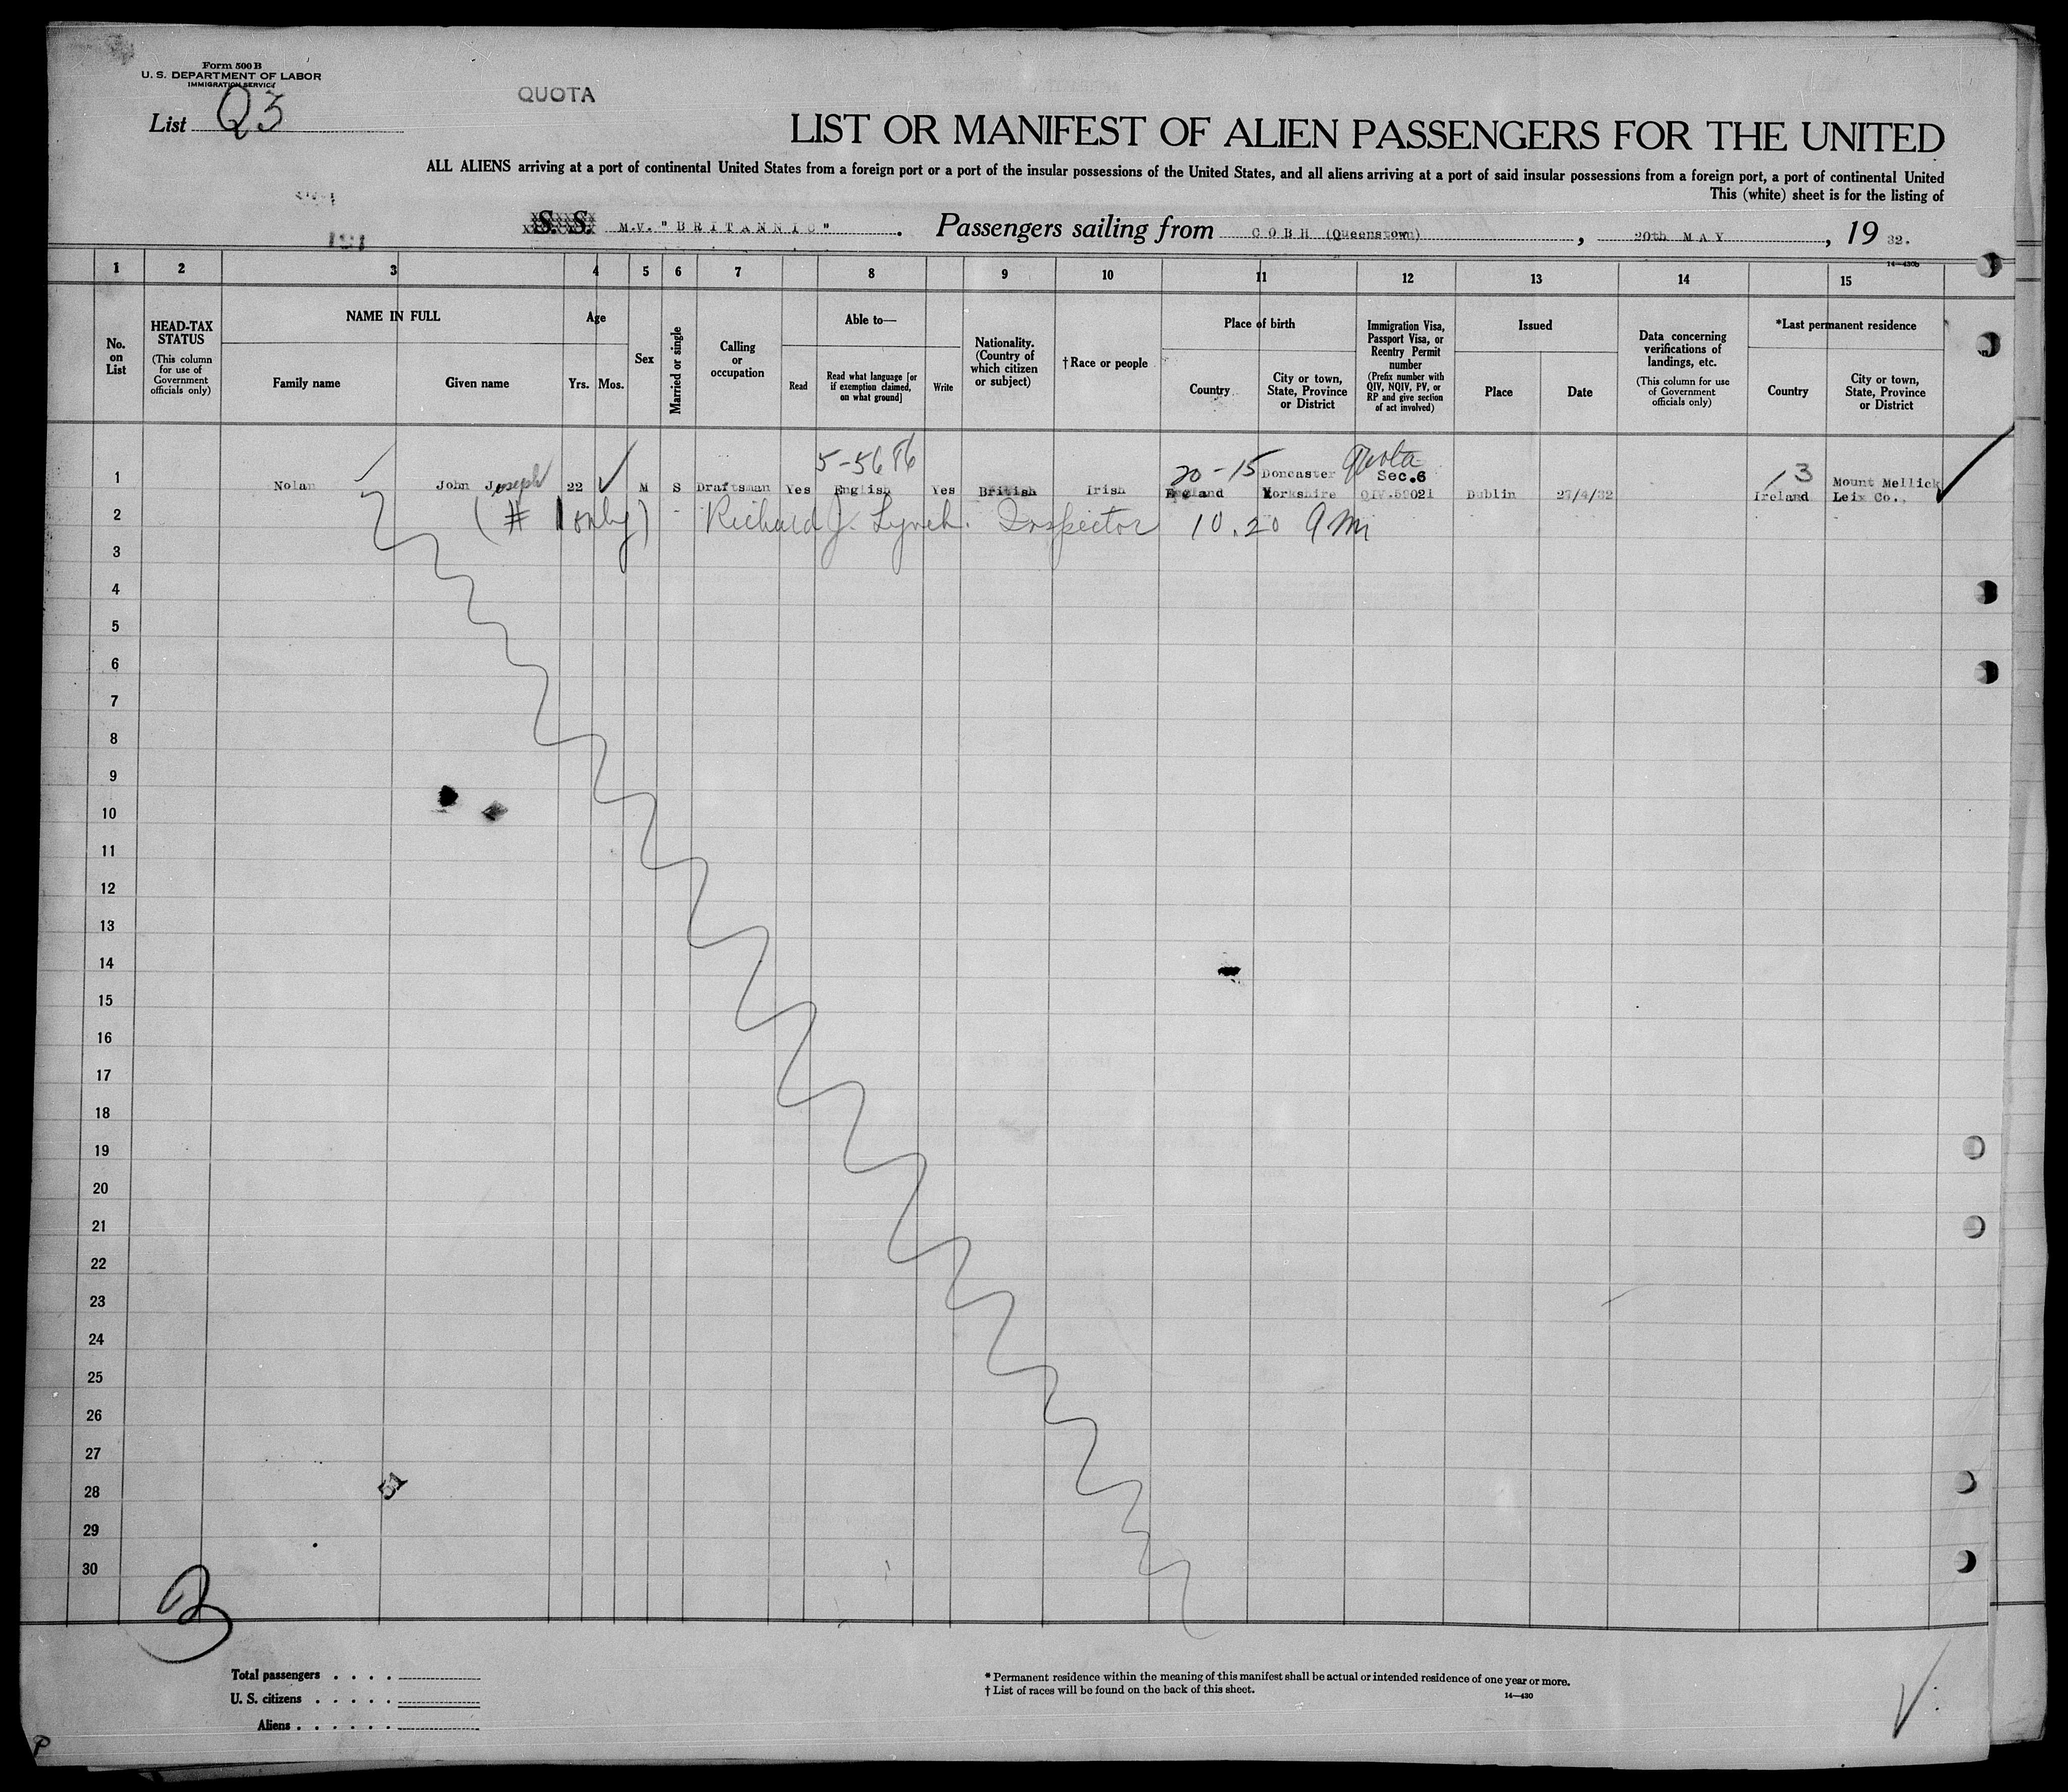 Form 500 B
U. S. DEPARTMENT OF LABOR
IMMIGRATION SERVICE
List Q3
QUOTA
LIST OR MANIFEST OF ALIEN PASSENGERS FOR THE UNITED
ALL ALIENS arriving at a port of continental United States from a foreign port or a port of the insular possessions of the United States, and all aliens arriving at a port of said insular possessions from a foreign port, a port of continental United
This (white) sheet is for the listing of
S. S. M.V. "BRITANNIC". Passengers sailing from COBH (Queenstown), 20th MAY, 19 32.
14—430b
1 2 3 4 5 6 7 8 9 10 11 12 13 14 15
No. on List
HEAD-TAX STATUS
(This column for use of Government officials only)
NAME IN FULL
Family name
Given name
Age
Yrs. Mos.
Sex
Married or single
Calling or occupation
Able to—
Read
Read what language [or if exemption claimed, on what ground]
Write
Nationality. (Country of which citizen or subject)
†Race or people
Place of birth
Country
City or town, State, Province or District
Immigration Visa, Passport Visa, or Reentry Permit number
(Prefix number with QIV, NQIV, PV, or RP and give section of act involved)
Issued
Place
Date
Data concerning verifications of landings, etc.
(This column for use of Government officials only)
*Last permanent residence
Country
City or town, State, Province or District
20-15 Doncaster Quota Sec.6 3 Mount Mellick
1 Nolan John Joseph 22 M S Draftsman Yes English Yes British Irish England Yorkshire Dublin 27/4/32 Ireland Leix Co.
2 (# 1 only) - Richard J. Lynch. Inspector 10.20 AM
3
4
5
6
7
8
9
10
11
12
13
14
15
16
17
18
19
20
21
22
23
24
25
26
27
28
29
30
Total passengers . . . .
U. S. citizens . . . . .
Aliens . . . . . .
* Permanent residence within the meaning of this manifest shall be actual or intended residence of one year or more.
† List of races will be found on the back of this sheet.
14—430